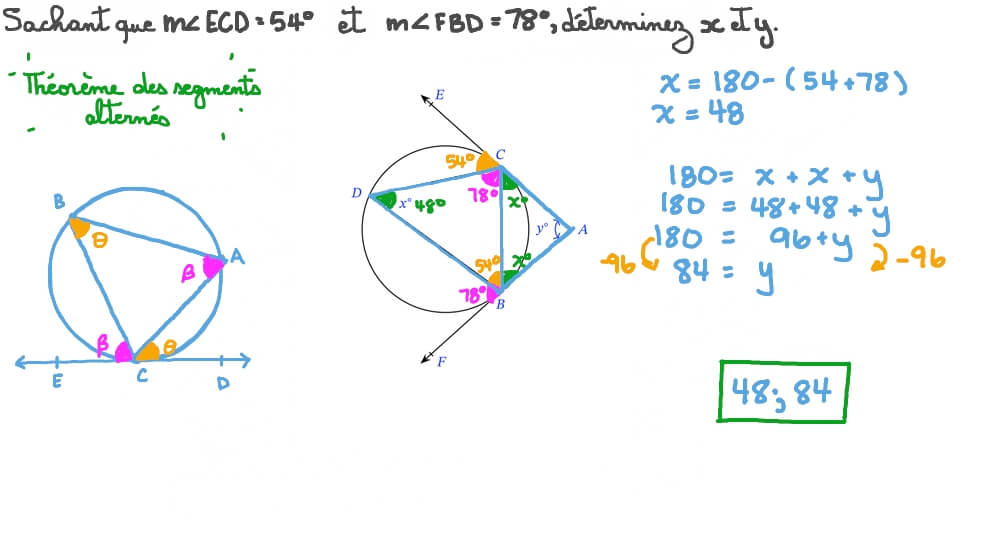 Sachant que m∠ECD = 54° et m∠FBD = 78°, déterminez x et y.
Théorème des segments
alternés
B
θ
A
β
β
θ
E
C
D
E
C
54°
D
x° 48°
78°
x°
y°
A
54°
x°
78°
B
F
x = 180 - (54 + 78)
x = 48
180 = x + x + y
180 = 48 + 48 + y
180 = 96 + y
-96
-96
84 = y
48; 84